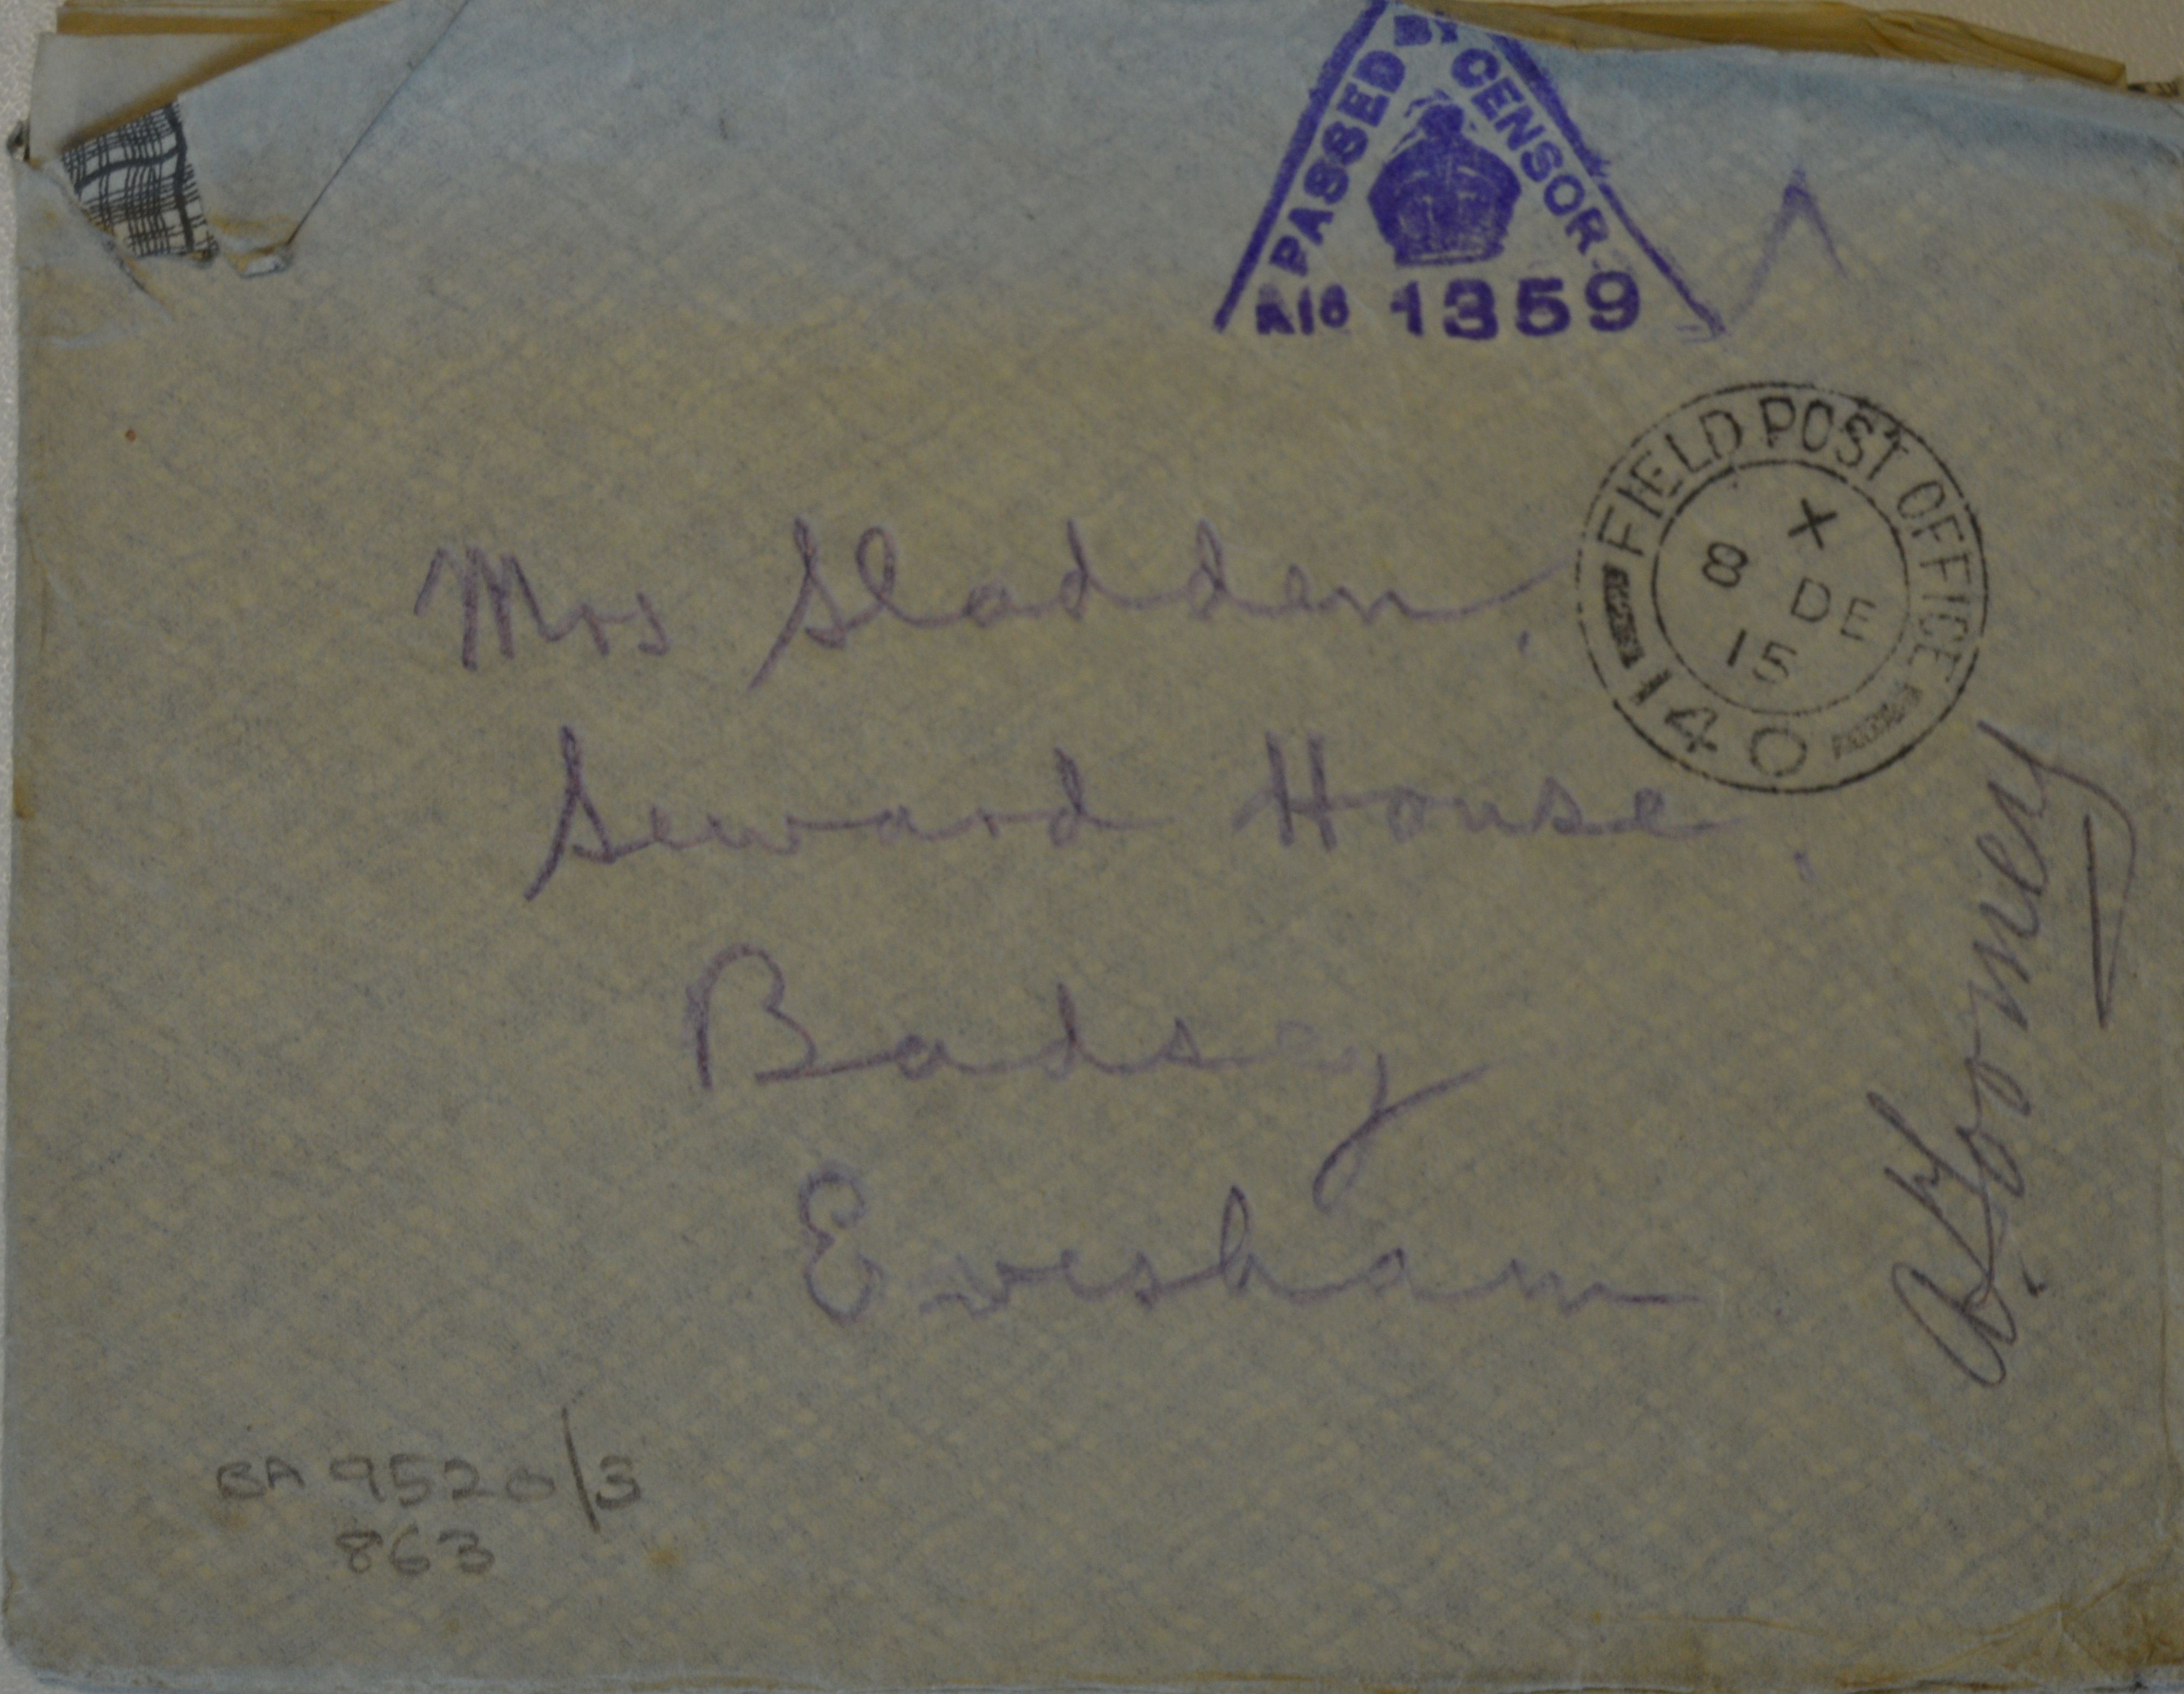 PASSED BY CENSOR
No 1359
FIELD POST OFFICE
X
8 DE
15
140
Mrs Sladden,
Seward House,
Badsey
Evesham
BA 9520/5
863